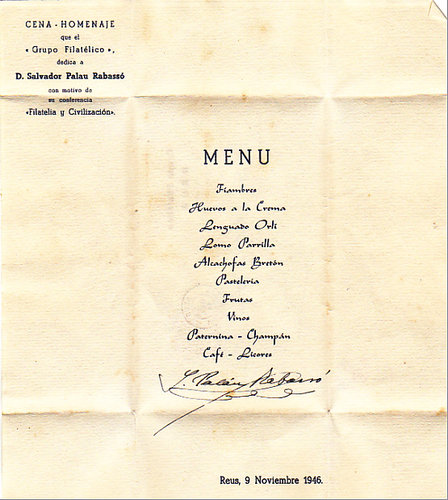 CENA - HOMENAJE
que el
« Grupo Filatélico »,
dedica a
D. Salvador Palau Rabassó
con motivo de
su conferencia
«Filatelia y Civilización».
MENU
Fiambres
Huevos a la Crema
Lenguado Orli
Lomo Parrilla
Alcachofas Bretón
Pastelería
Frutas
Vinos
Paternina - Champán
Café - Licores
S. Palau Rabassó
Reus, 9 Noviembre 1946.